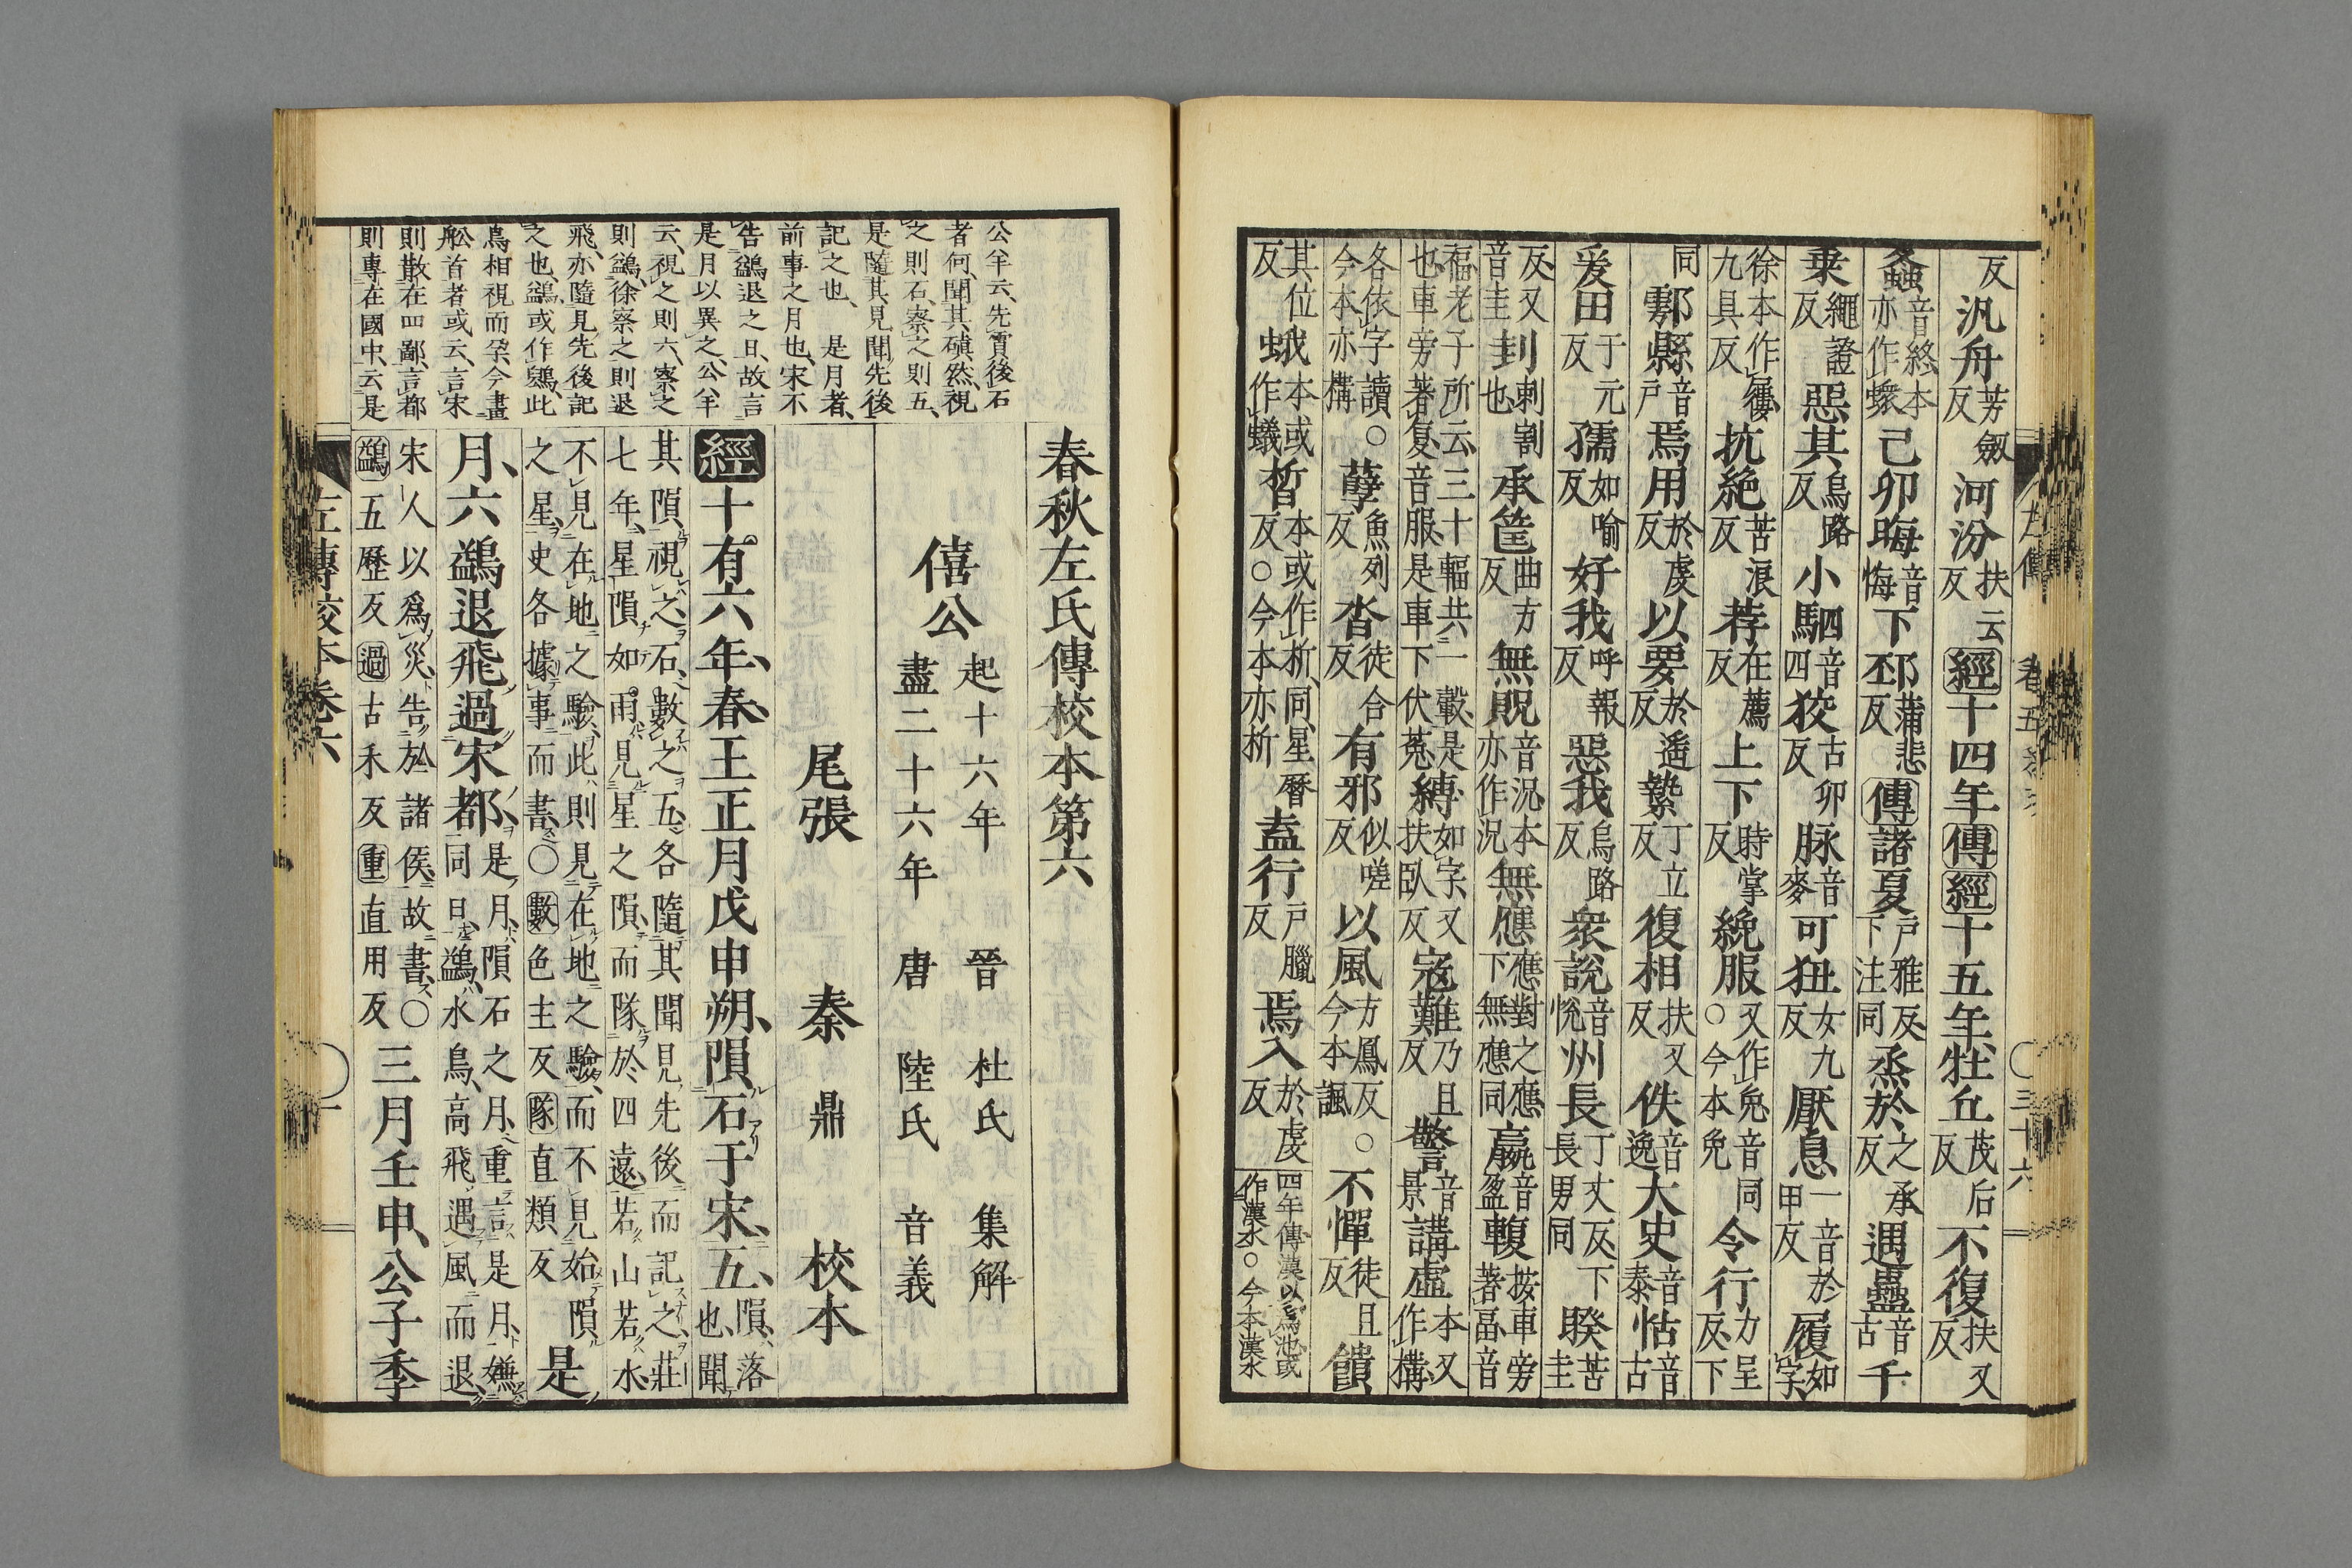 反汎舟芳劔反河汾扶云反經十四年傳經十五年牡丘茂后反不復扶又反
螽音終本亦作己卯晦音悔下邳蒲悲反傳諸夏戶雅反下注同烝於之承反遇蠱音古千
乗繩證反惡其烏路反小駟音四狡古卯反脉音麥可狃女九反厭息一音於甲反履如字
徐本作屨九具反抗絶苦浪反荐在薦反上下時掌反絻服又作免音同○今本免令行力呈反下
同鄠縣音戶焉用於虔反以要於遥反縶丁立反復相扶又反佚音逸大史音泰怙音古
爰田于元反孺如喻反好我呼報反惡我烏路反衆說音悅州長丁丈反下長男同睽苦圭
反又音圭刲刺割也承筐曲方反無貺音況本亦作況無應應對之應下無應同嬴音盈輹按車旁著畐音
福老子所云三十輻共一轂是也車旁著复音服是車下伏菟縛如字又扶臥反寇難乃且反警音景講虛本又作構
各依字讀○今本亦構孽魚列反沓徒合反有邪似嗟反以風方鳳反○今本諷不憚徒且反饋
其位反蛾本或作蟻晳本或作析同星曆反○今本亦析盍行戶臘反焉入於虔反四年傳漢以爲池或作漢水○今本漢水
公羊云先霣後石
者何聞其磌然視
之則石察之則五
是隨其見聞先後
記之也 是月者
前事之月也宋不
告鷁退之日故言
是月以異之公羊
云視之則六察之
則鷁徐察之則退
飛亦隨見先後記
之也鷁或作鶂此
鳥相視而孕今畫
舩首者或云言宋
則散在四鄙言都
則專在國中云是
春秋左氏傳校本第六
僖公
起十六年 晉 杜氏 集解
盡二十六年 唐 陸氏 音義
尾張 秦 鼎 校本
經十有六年春王正月戊申朔隕石于宋五隕落也聞
其隕視之石數之五各隨其聞見先後而記之莊
七年星隕如雨見星之隕而隊於四遠若山若水
不見在地之驗此則見在地之驗而不見始隕
之星史各據事而書○數色主反隊直類反是
月六鷁退飛過宋都是月隕石之月重言是月嫌
同日鷁水鳥高飛遇風而退
宋人以爲災告於諸侯故書○
鷁五歷反過古禾反重直用反三月壬申公子季
左傳校本卷六